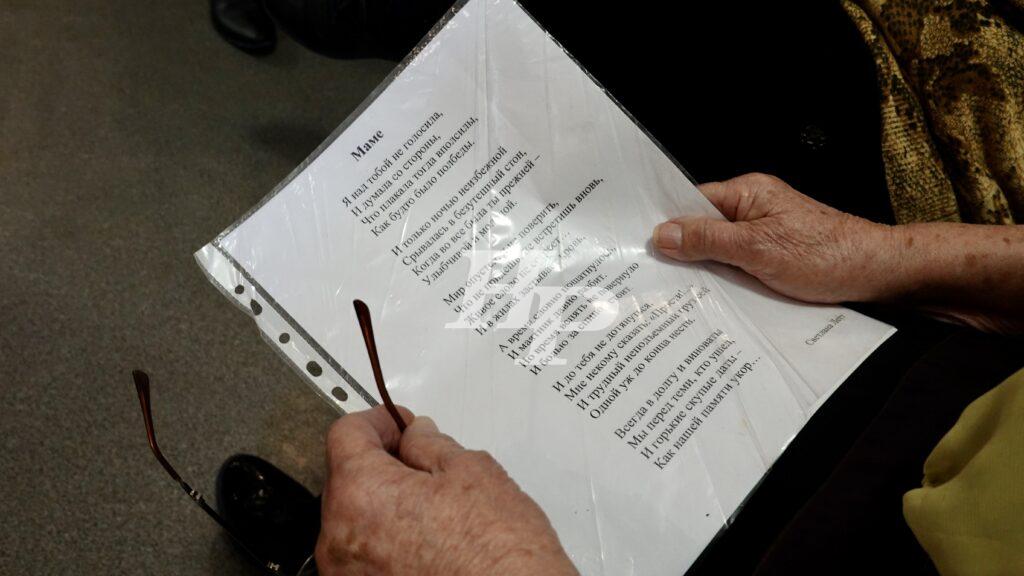 Маме
Я над тобой не голосила,
И думала со стороны,
Что плакала тогда вполсилы,
Как будто было полбеды.
И только ночью неизбежной
Срывалась в безутешный стон,
Когда во сне была ты прежней –
Улыбчивой и молодой.
Мир опустел поверить,
Что не встретишь вновь,
Живое слово не
И в жилах застывает кровь.
А время словно пошатнулось,
И маятник давно разбит.
Но время вспять не повернуло
И болью за
И до тебя не дотянуться,
Мне некому сказать: «Прости!
И трудный неподъемный груз
Одной уж до конца нести.
Всегда в долгу и виноваты
Мы перед теми, кто ушел,
И горькие скупые даты –
Как нашей памяти укор…
Светлана